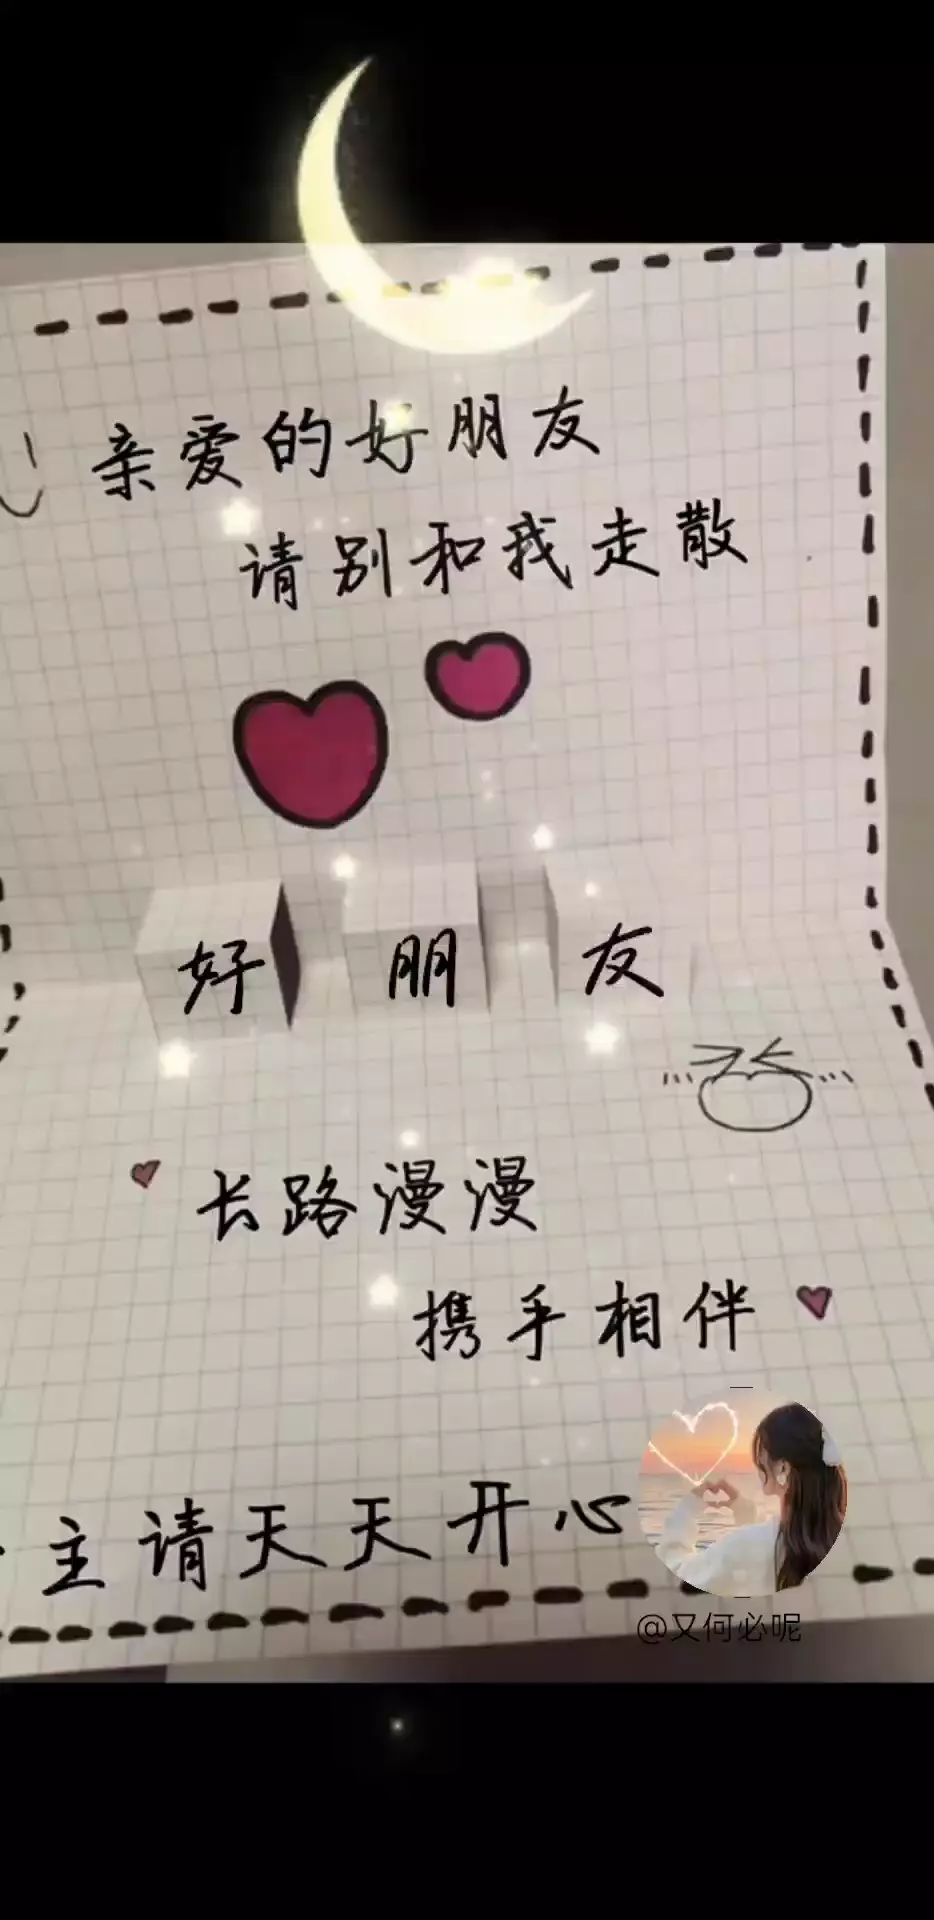 亲爱的好朋友
请别和我走散
好朋友
长路漫漫
携手相伴
主请天天开心
@又何必呢